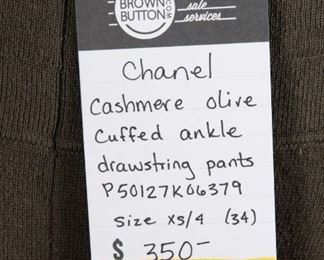 BROWN
BUTTON
.COM
sale
services
Chanel
Cashmere olive
Cuffed ankle
drawstring pants
P50127K06379
Size XS/4 (34)
$ 350-